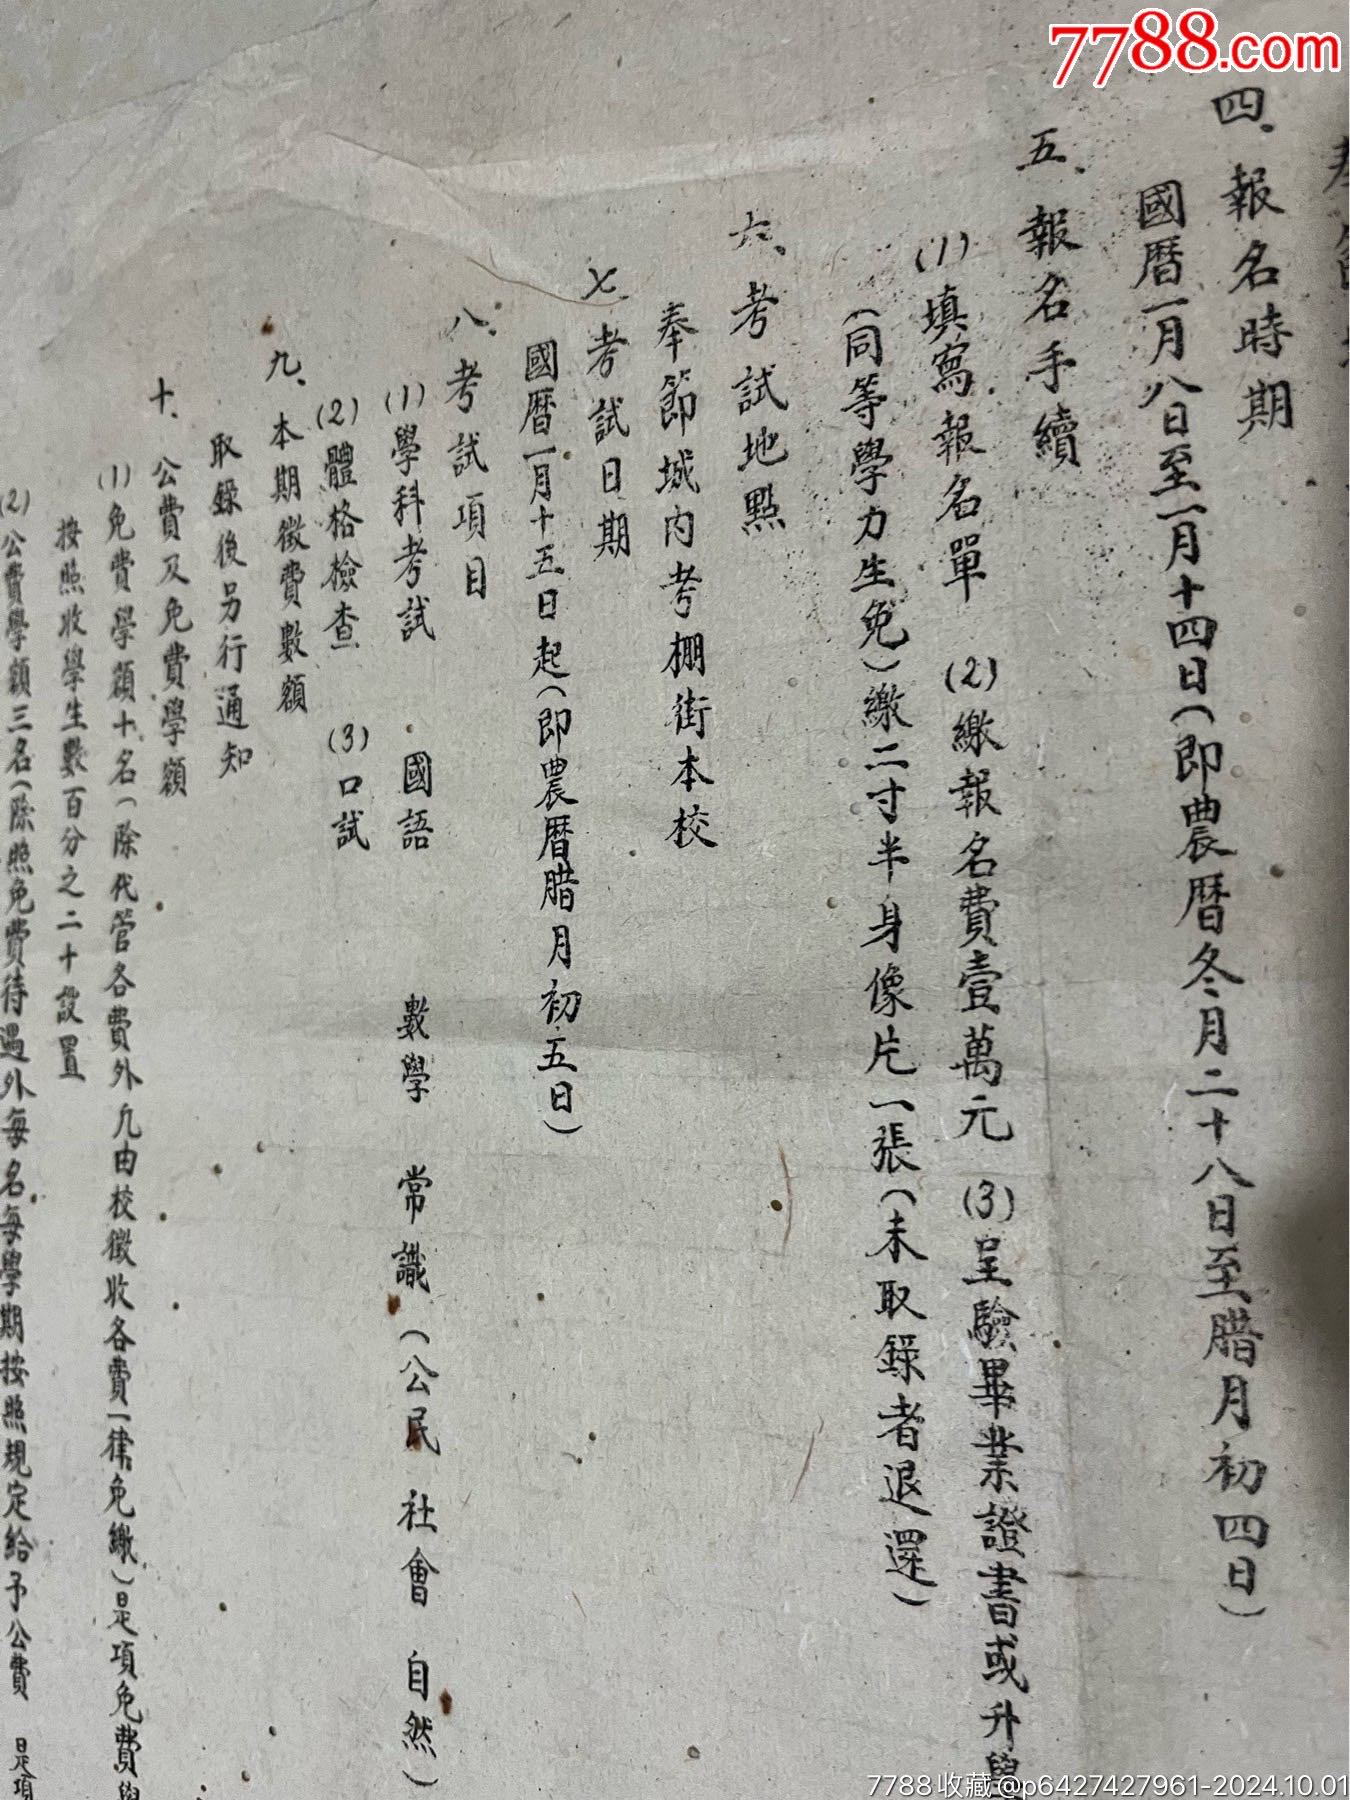 7788.com
四、報名時期
國曆一月八日至一月十四日(即農曆冬月二十八日至腊月初四日)
五、報名手續
(1)填寫報名單 (2)繳報名費壹萬元 (3)呈驗畢業證書或升學
(同等學力生免)繳二寸半身像片一張(未取錄者退還)
六、考試地點
奉節城内考棚街本校
七、考試日期
國曆一月十五日起(即農曆腊月初五日)
八、考試項目
(1)學科考試 國語 數學 常識(公民 社會 自然)
(2)體格檢查 (3)口試
九、本期徵費數額
取錄後另行通知
十、公費及免費學額
(1)免費學額十名(除代管各費外凡由校徵收各費一律免繳)是項免費學
按照收學生數百分之二十設置
(2)公費學額三名(除照免費待遇外每名每學期按照規定給予公費 是項
7788收藏@p6427427961-2024.10.01